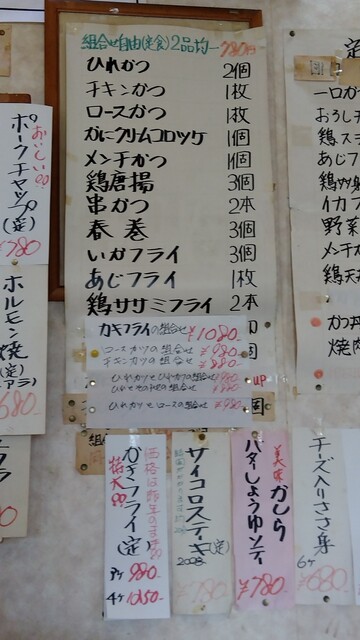 組合せ自由(定食)2品均一780円
ひれかつ 2個
チキンかつ 1枚
ロースかつ 1枚
かにクリムコロッケ 1個
メンチかつ 1個
鶏唐揚 3個
串かつ 2本
春巻 3個
いかフライ 3個
あじフライ 1枚
鶏ササミフライ 2本
カキフライの組合せ ¥1080-
ロースカツの組合せ ¥980-
チキンカツの組合せ ¥880-
up
ひれかつとロースの組合せ
おいしい!!
ポークチャップ(定)
¥780
ホルモン焼(定)
680-
価格は昨年のまま
かきフライ(定)
特大
3ケ 980-
4ケ 1050-
サイコロステーキ(定)
200g
¥780-
美味
かしら
バタしょうゆソテー
¥780-
チーズ入りささ身
6ケ
¥680-
定
一口か
おろし
鶏ス
あじフ
イカフ
野菜
メンチ
鶏天
かつ丼
焼肉